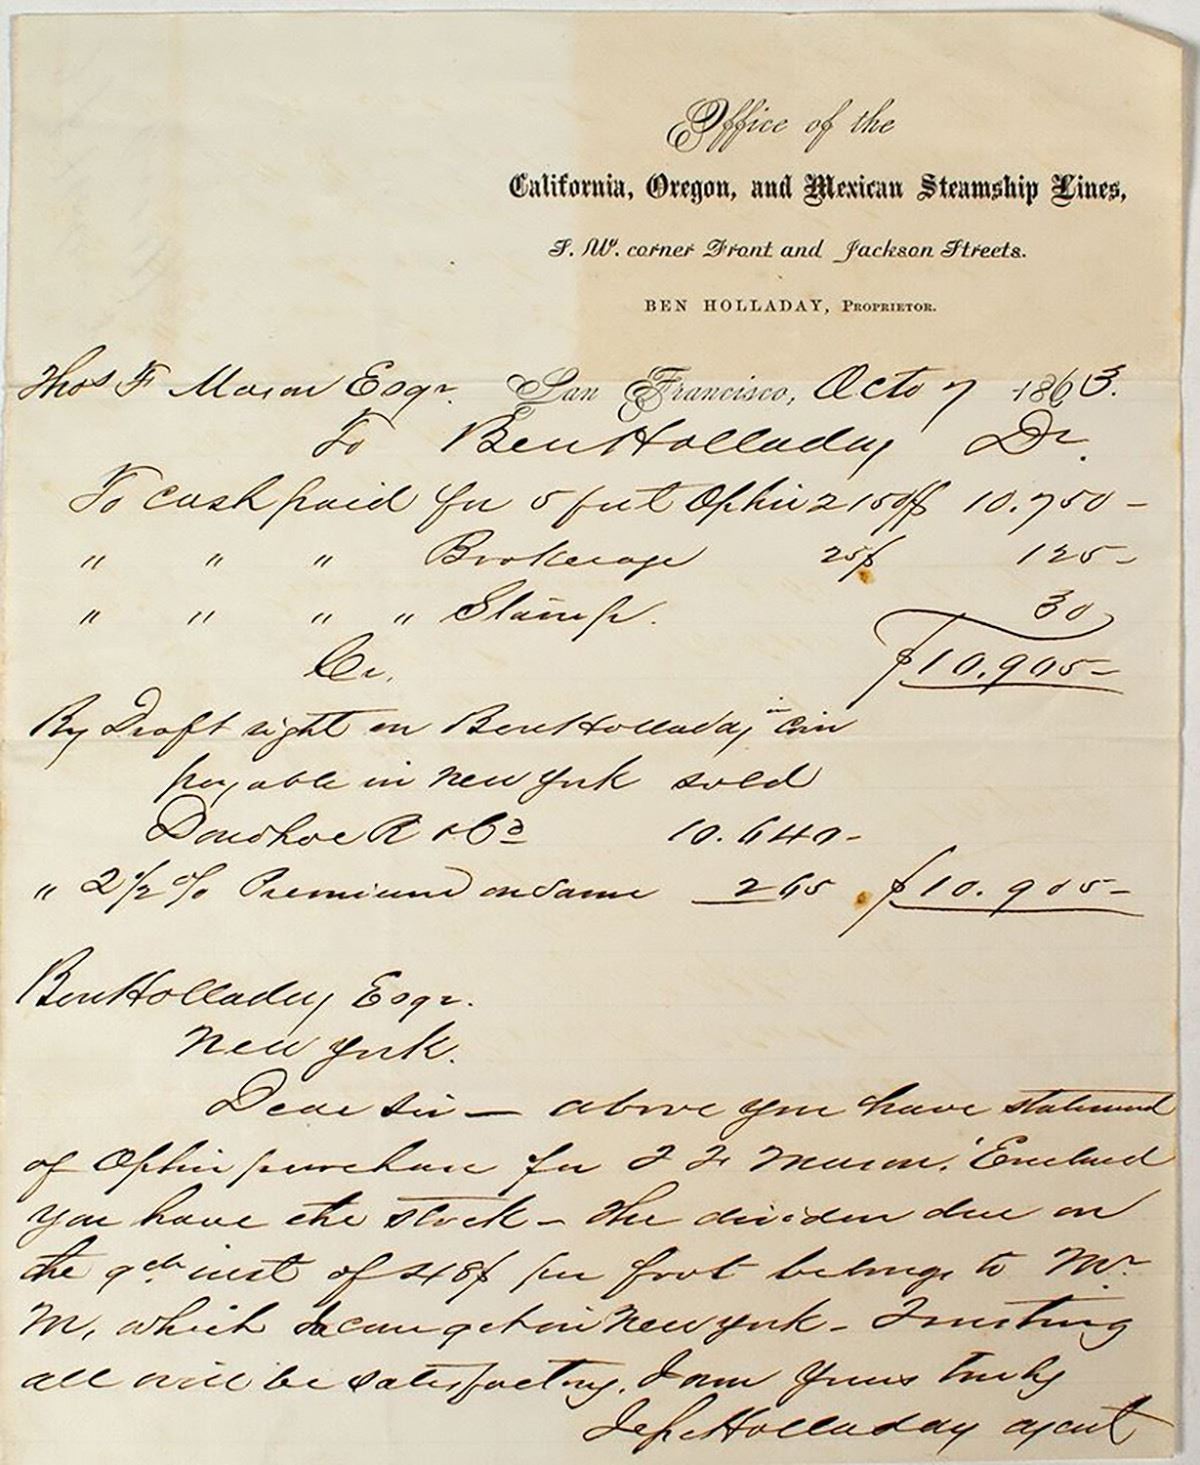 Office of the
California, Oregon, and Mexican Steamship Lines,
S. W. corner Front and Jackson Streets.
BEN HOLLADAY, PROPRIETOR.
Thos F Mason Esqr. San Francisco, Octo 7 1863.
To Ben Holladay Dr.
To cash paid for 5 feet Ophir 2150 10.750 —
" " " Brokerage 25 125 —
" " " " Stamp. 30
Cr. $10.905 —
By Draft sight on Ben Holladay in Coin
payable in New York sold
Donohoe R & Co 10.640 —
" 2 1/2 % Premium on Same 265 $10.905 —
Ben Holladay Esqr.
New York.
Dear Sir — above you have statement
of Ophir purchase for T F Mason. Enclosed
you have the stock — The dividen due on
the 9th inst of 48$ per foot belongs to Mr
M, which he can get in New York — Trusting
all will be satisfactory. I am Yours truly
Holladay agent